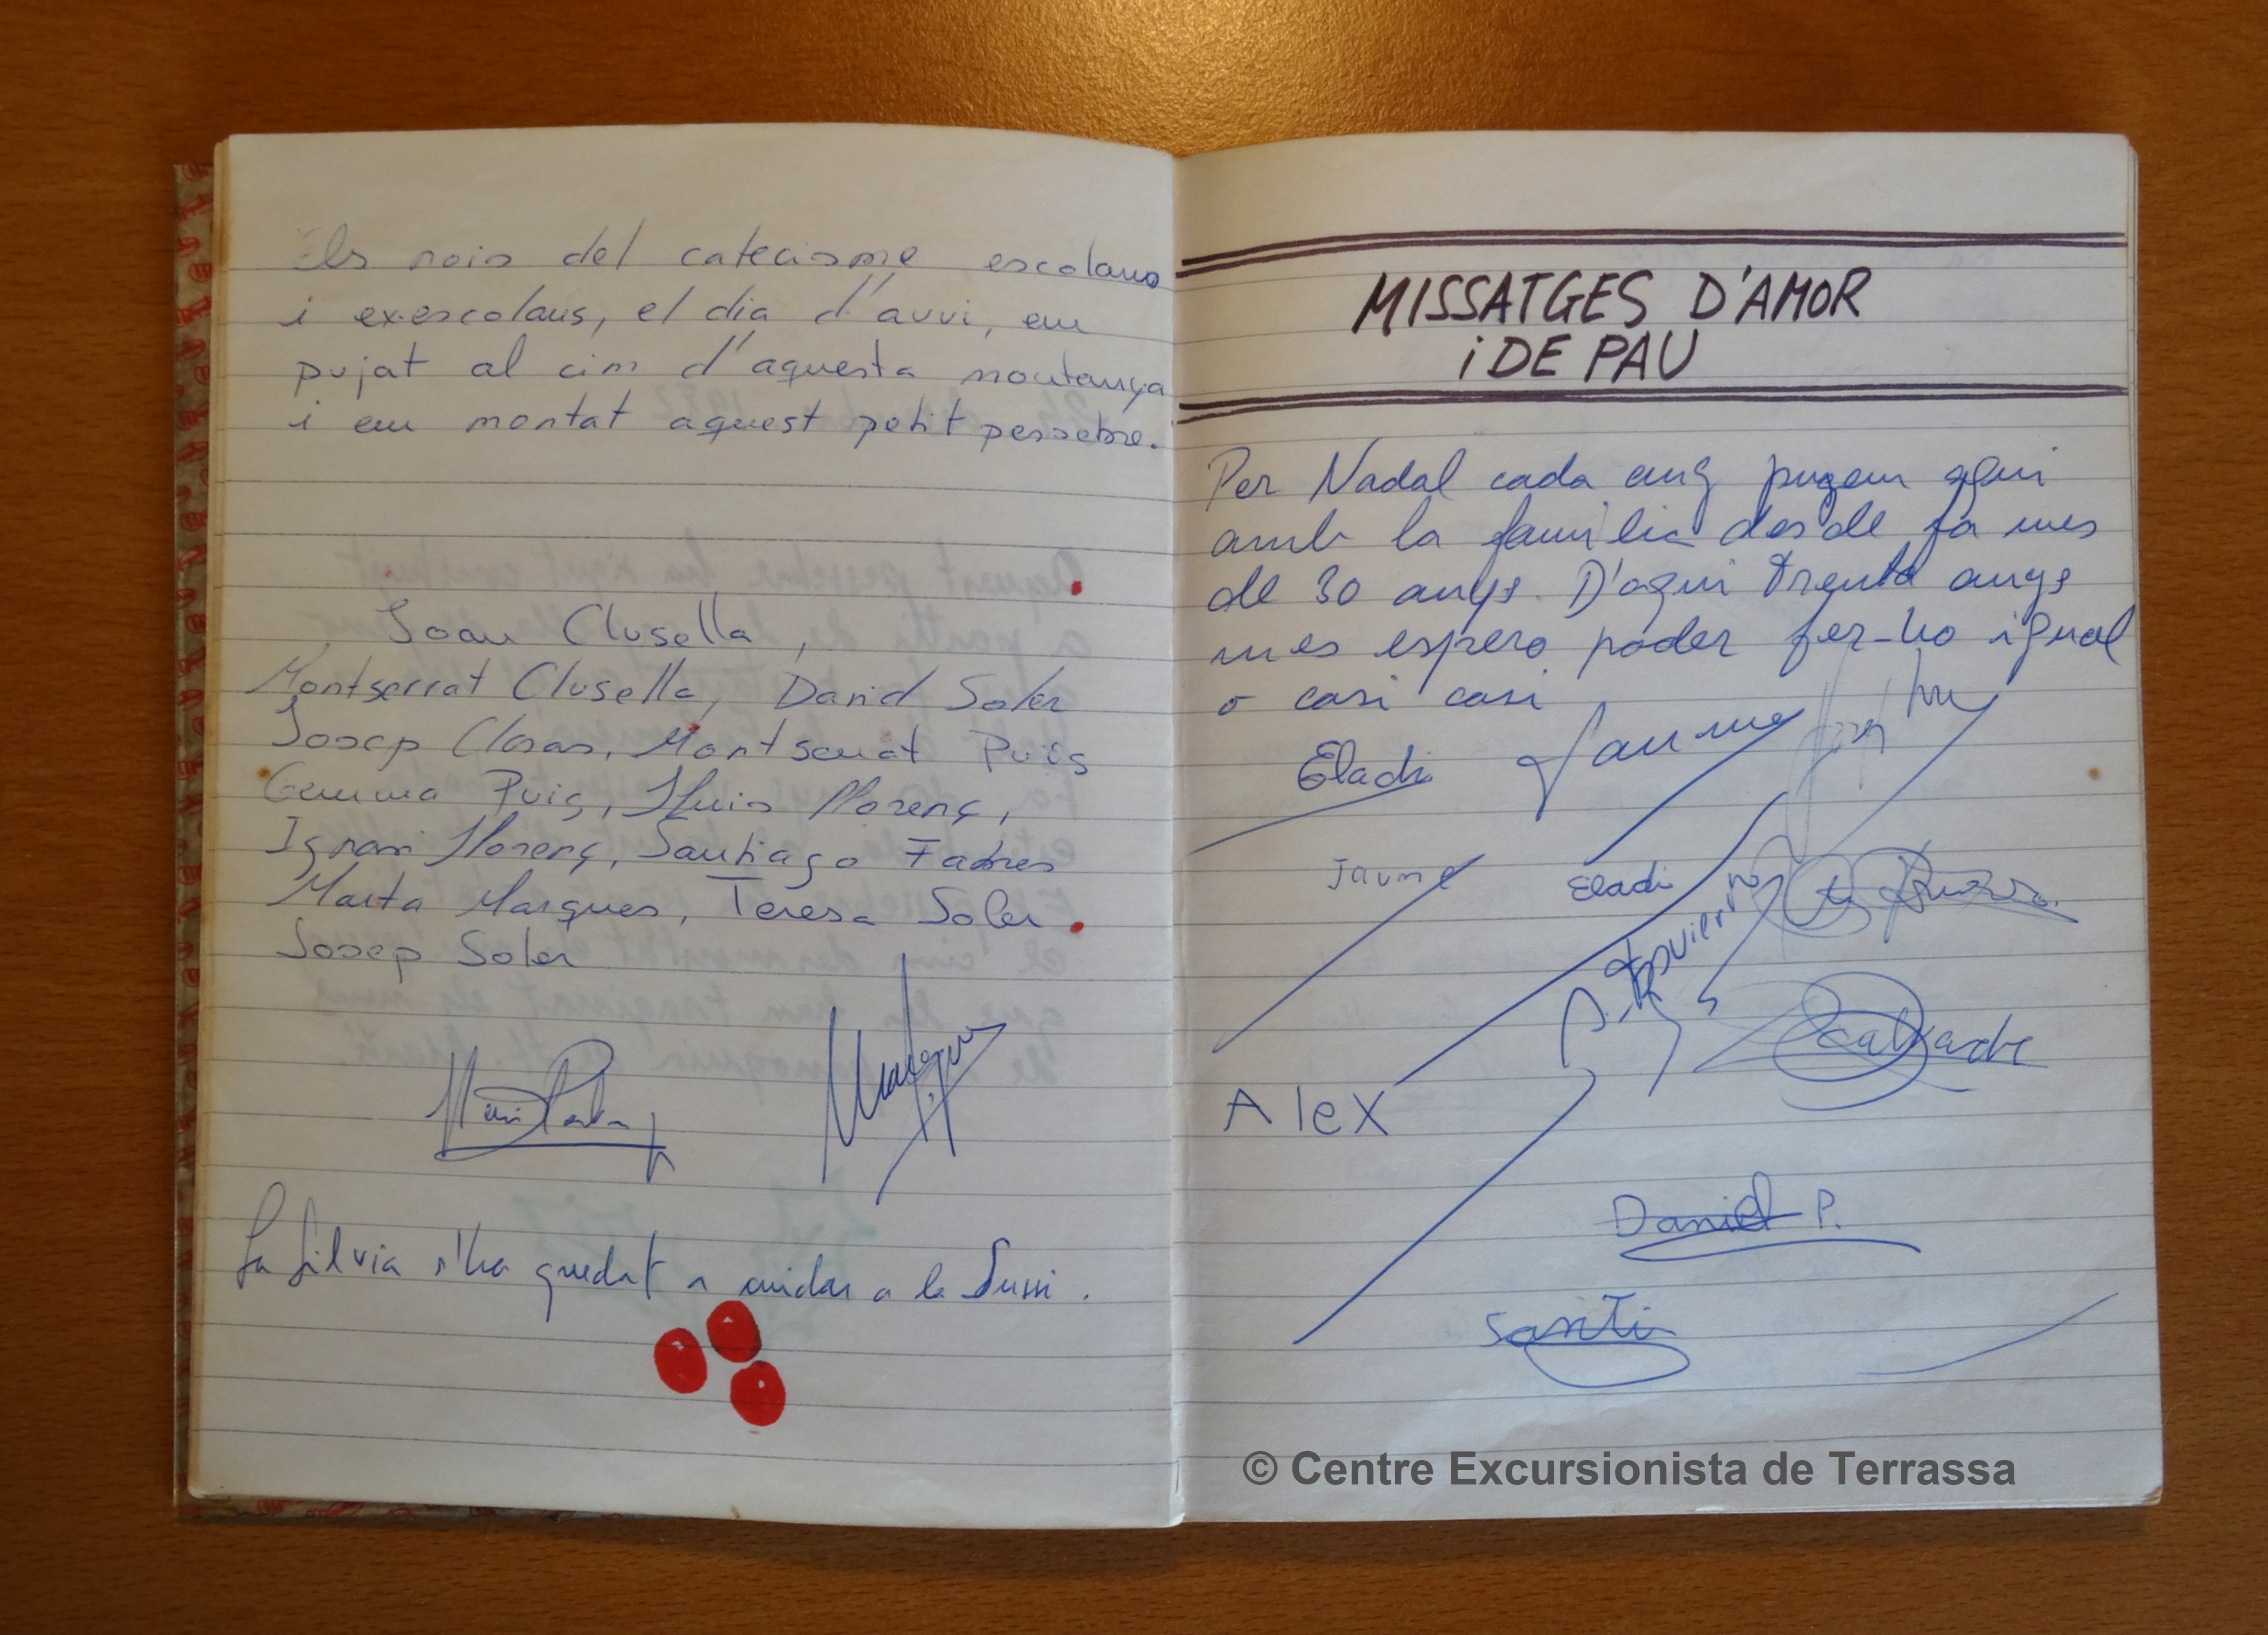 Els nois del catecisme escolans
i exescolans, el dia d'avui, em
pujat al cim d'aquesta montanya
i em montat aquest petit pessebre.
Joan Clusella,
Montserrat Clusella, David Soler
Josep Closas, Montserrat Puig
Gemma Puig, Lluis Llorenç,
Ignasi Llorenç, Santiago Fadres
Marta Marques, Teresa Soler
Josep Soler
La Silvia s'ha quedat a cuidar a la Sussi.
MISSATGES D'AMOR
i DE PAU
Per Nadal cada any pugem aqui
amb la familia desde fa mes
de 30 anys. D'aqui trenta anys
mes espero poder fer-ho igual
o casi casi
Eladi Jaume
Jaume Eladi
A. Izquierdo
Alex
Daniel P.
Santi
© Centre Excursionista de Terrassa